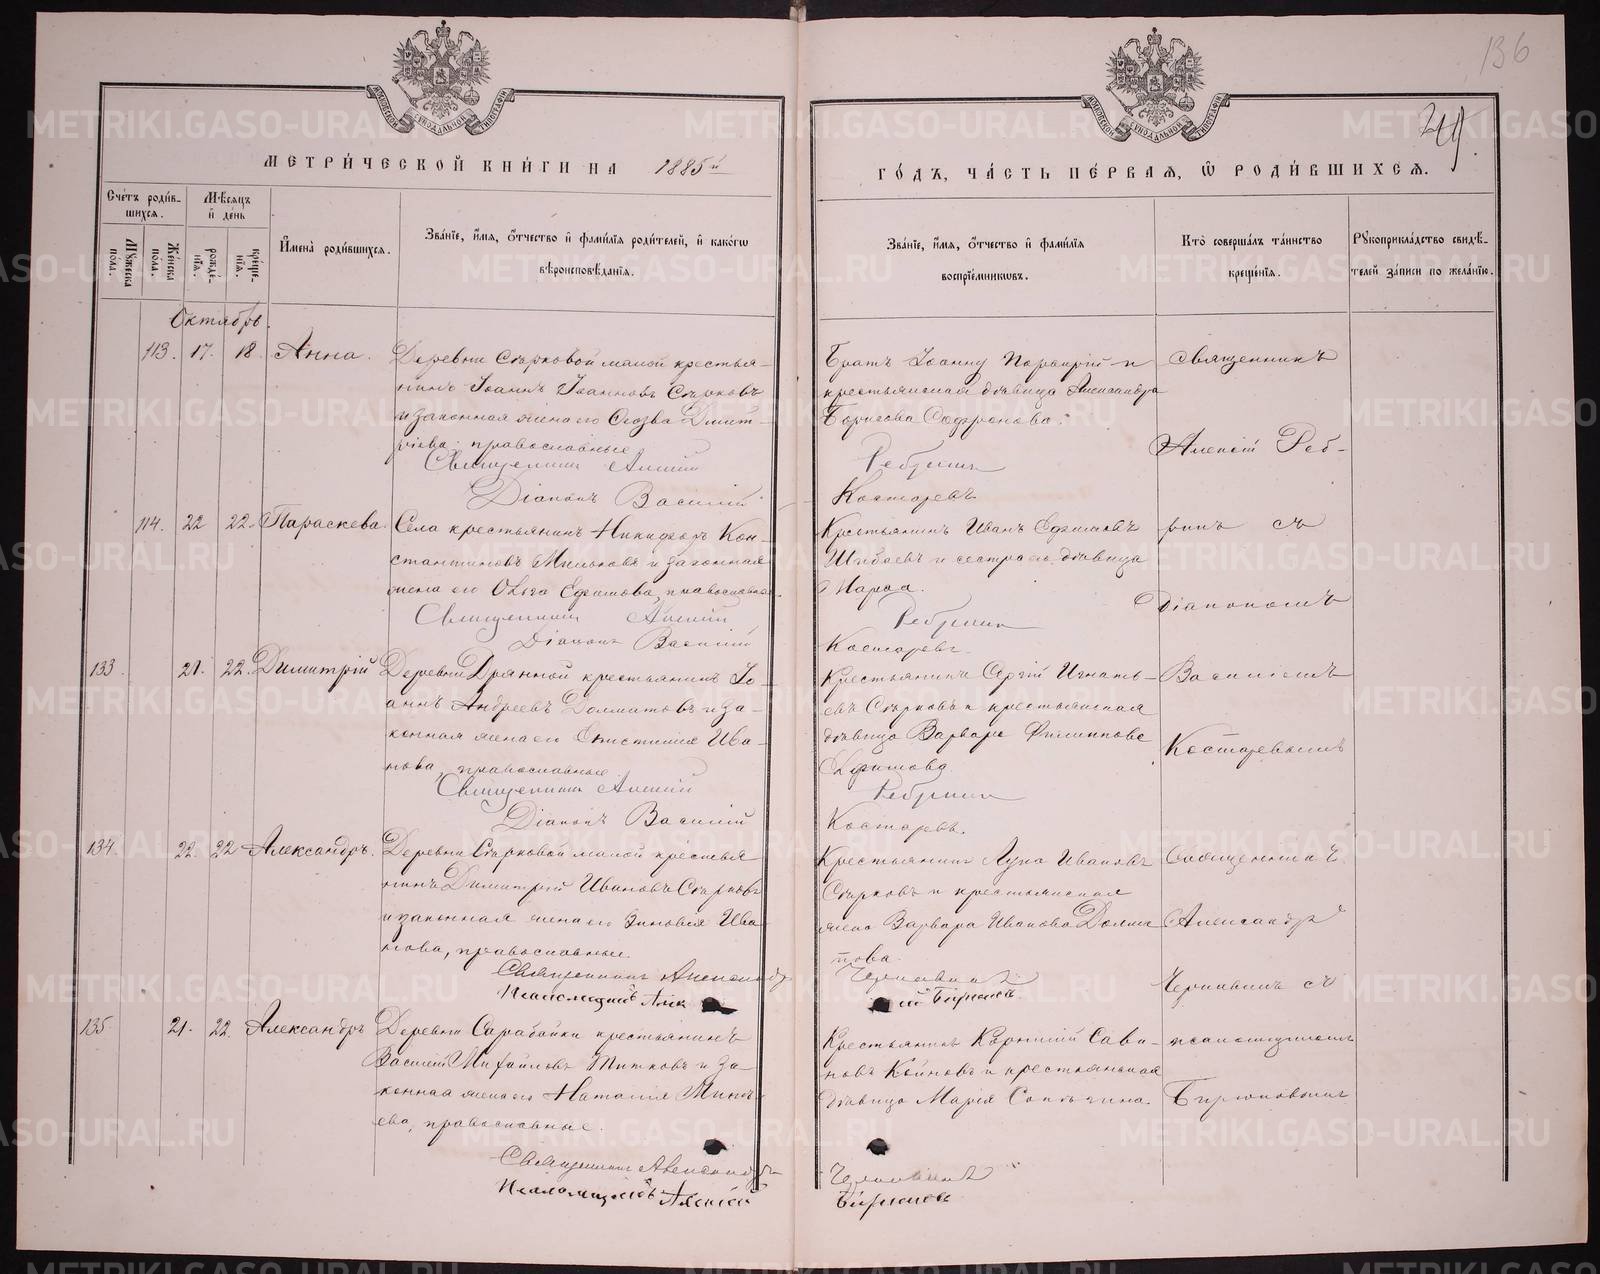 136
241
МОСКОВСКОЙ СѴНОДАЛЬНОЙ ТИПОГРАФІИ
МОСКОВСКОЙ СѴНОДАЛЬНОЙ ТИПОГРАФІИ
МЕТРИ́ЧЕСКОЙ КНИ́ГИ НА 1885й
ГО́ДЪ, ЧА́СТЬ ПЕ́РВАЯ, Ѽ РОДИ́ВШИХСЯ.
Сче́тъ роди́в-
шихся.
Му́жеска
по́ла.
Же́нска
по́ла.
Мѣ́сяцъ
и҆ де́нь
рожде́-
нїѧ.
креще́-
нїѧ.
И҆мена̀ роди́вшихся.
Зва́нїе, и҆́мя, ѻ҆́тчество и҆ фами́лїя роди́телей, и҆ како́гѡ
вѣроисповѣ́данїя.
Зва́нїе, и҆́мя, ѻ҆́тчество и҆ фами́лїя
воспрїе́мникѡвъ.
Кто̀ соверша́лъ та́инство
креще́нїя.
Рꙋкоприкла́дство свидѣ́-
телей за́писи по жела́нїю.
Октябрь.
113. 17. 18. Анна.
Деревни Сѣрковой малой крестья-
нинъ Іоаннъ Іоанновъ Сѣрковъ
и законная жена его Дмит-
ріева, православные
Священникъ Алексій
Діаконъ Василій
Братъ Іоанну Порфирій и
крестьянская дѣвица Александра
Борисова Софронова.
Ребринъ
Костаревъ
Священникъ
Алексій Реб-
114. 22 22. Параскева.
Села крестьянинъ Никифоръ Кон-
стантиновъ Мильковъ и законная
жена его Ольга Ефимова, православные.
Священникъ Алексій
Діаконъ Василій
Крестьянинъ Иванъ Ефимовъ
Шибаевъ и сестра его дѣвица
Марѳа.
Ребринъ
Костаревъ
ринъ съ
Діакономъ
133 21. 22. Димитрій
Деревни Дрянной крестьянинъ Іо-
аннъ Андреевъ Долматовъ и за-
конная жена его Ива-
нова, православные.
Священникъ Алексій
Діаконъ Василій
Крестьянинъ Сергій Игнать-
евъ Сѣрковъ и крестьянская
дѣвица Варвара Филиппова
Ефимова
Ребринъ
Костаревъ.
Василіемъ
Костаревымъ
134 22. 22 Александръ.
Деревни Сѣрковой малой крестья
нинъ Димитрій Ивановъ Сѣрковъ
и законная жена его Зиновія Ива-
нова, православные.
Священникъ Александръ
Псаломщикъ Алек
Крестьянинъ Лука Ивановъ
Сѣрковъ и крестьянская
жена Варвара Иванова Долма
това.
Чернавинъ
ій Бирюковъ
Священникъ
Александръ
Чернавинъ съ
135 21. 22. Александръ
Деревни Сарабайки крестьянинъ
Василій Михайловъ Титковъ и за-
конная жена его Наталія Мине-
ева, православные.
Священникъ Александръ
Псаломщикъ Алексій
Крестьянинъ Корнилій Сави-
новъ Койновъ и крестьянская
дѣвица Марія Сапѣгина.
Чернавинъ
Бирюковъ
псаломщикомъ
Бирюковымъ
METRIKI.GASO-URAL.RU